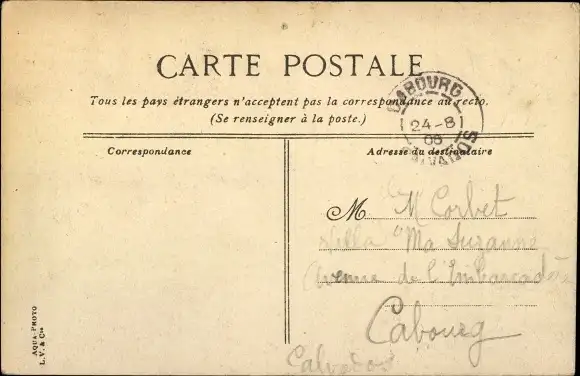 CARTE POSTALE
CABOURG
24-8
06
CALVADOS
Tous les pays étrangers n'acceptent pas la correspondance au recto.
(Se renseigner à la poste.)
Correspondance
Adresse du destinataire
M M Corbet
Villa "Ma Suzanne
Avenue de l'Embarcadère
Cabourg
Calvados
AQUA-PHOTO
L.V. & Cie